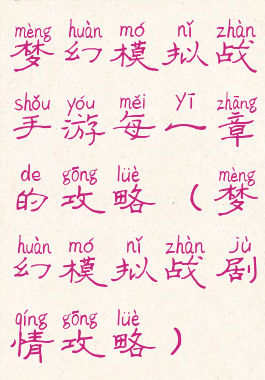 mèng huàn mó nǐ zhàn
梦幻模拟战
shǒu yóu měi yī zhāng
手游每一章
de gōng lüè mèng
的攻略（梦
huàn mó nǐ zhàn jù
幻模拟战剧
qíng gōng lüè
情攻略）